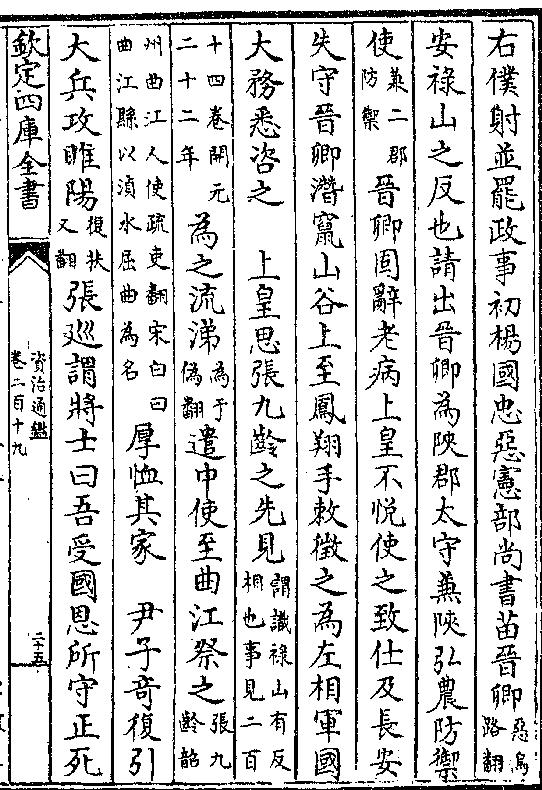 右僕射並罷政事初楊國忠惡憲部尚書苗晉卿惡烏路翻
安祿山之反也請出晉卿為陜郡太守兼陜弘農防禦
使兼二郡防禦晉卿固辭老病上皇不悅使之致仕及長安
失守晉卿潛竄山谷上至鳳翔手敕徵之為左相軍國
大務悉咨之　上皇思張九齡之先見謂識祿山有反相也事見二百
十四卷開元二十二年為之流涕為于偽翻遣中使至曲江祭之張九齡韶
州曲江人使疏吏翻宋白曰曲江縣以湞水屈曲為名厚恤其家　尹子竒復引
大兵攻睢陽復扶又翻張廵謂將士曰吾受國恩所守正死
欽定四庫全書
資治通鑑
卷二百十九
二十五